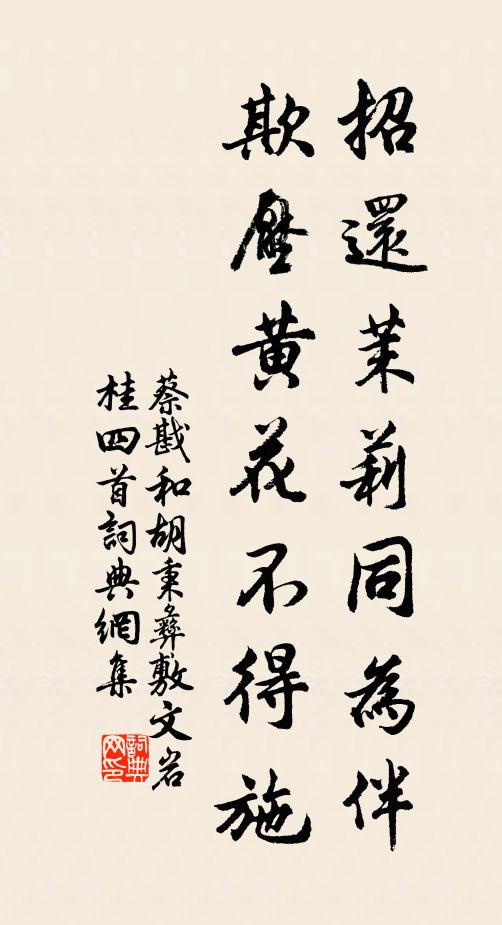 招還茉莉同為伴
欺壓黃花不得施
蔡戡和胡秉彝敷文岩
桂四首詞典網集
詞典网印